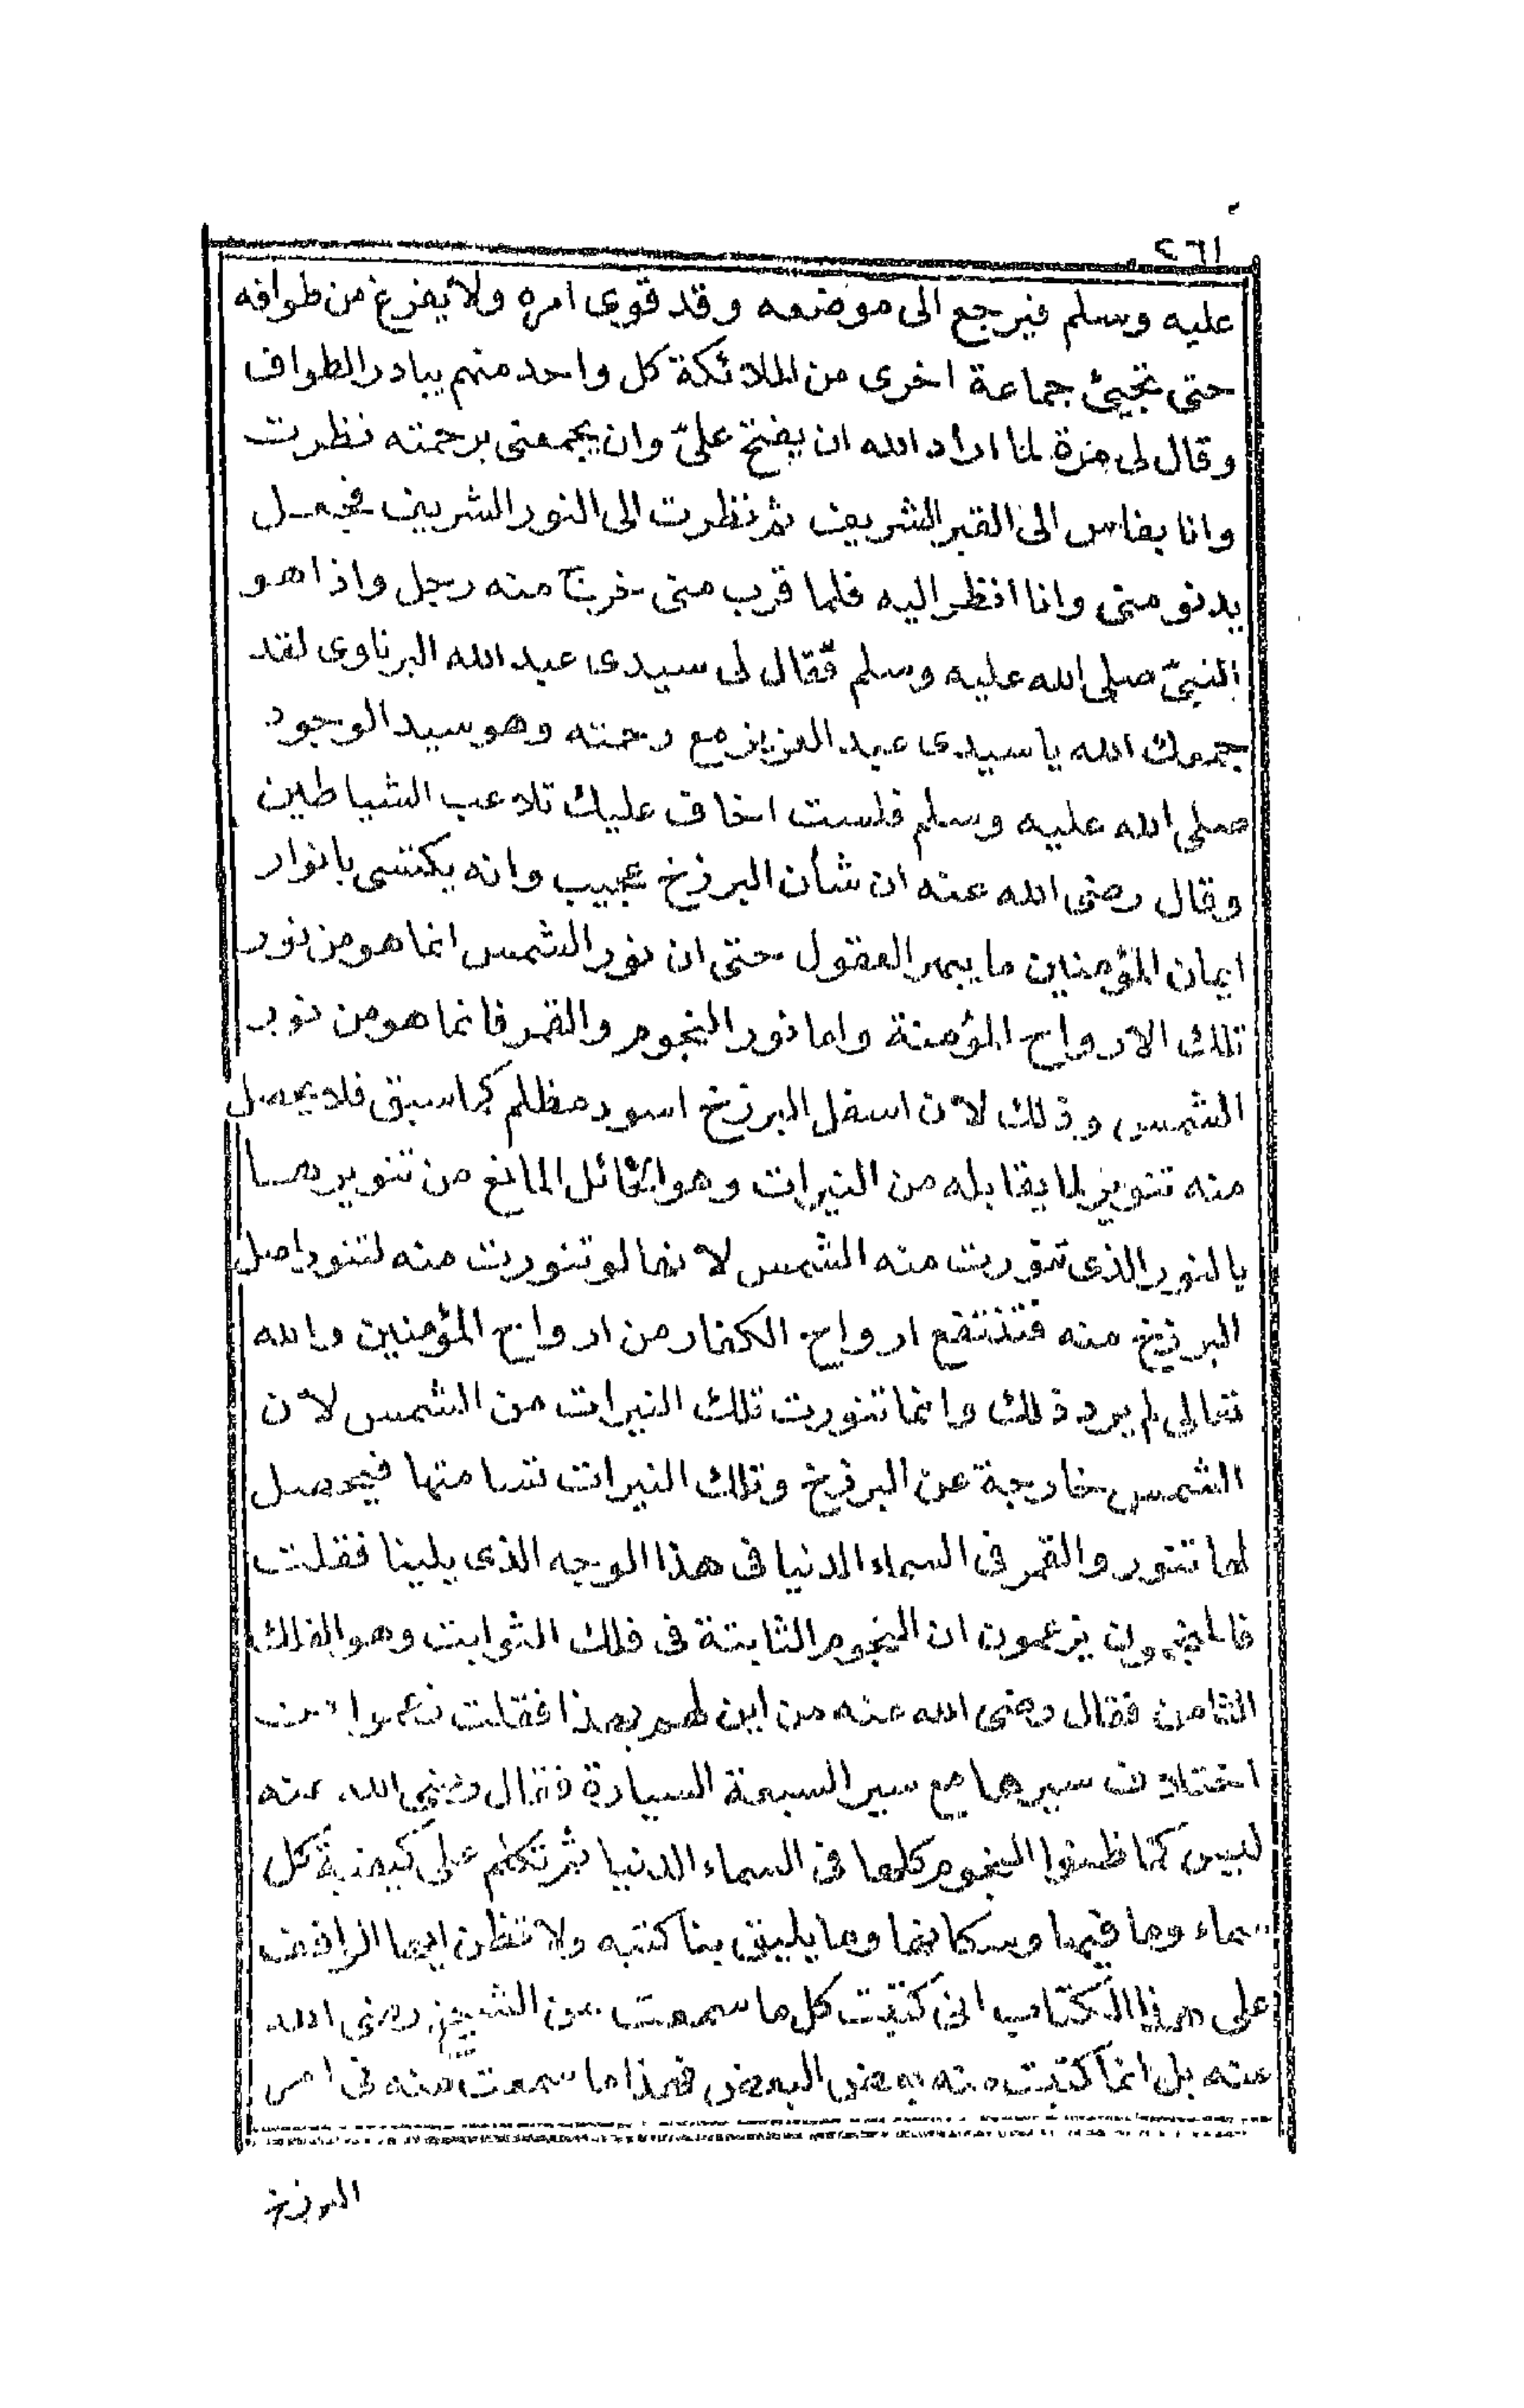 ٤٦١
عليه وسلم فيرجع الى موضعه وقد قوى امره ولا يفزع من طوافه
حتى تجيئ جماعة اخرى من الملائكة كل واحد منهم يبادر الطواف
وقال لى مرة لما اراد الله ان يفتح علىّ وان يجمعنى برحمته نظرت
وانا بفاس الى القبر الشريف ثم نظرت الى النور الشريف فجعل
يدنو منى وانا انظر اليه فلما قرب منى خرج منه رجل واذا هو
النبىّ صلى الله عليه وسلم فقال لى سيدى عبد الله البرناوى لقد
جمعك الله يا سيدى عبد العزيز مع رحمته وهو سيد الوجود
صلى الله عليه وسلم فلست اخاف عليك تلاعب الشياطين
وقال رضى الله عنه ان شأن البرزخ عجيب وانه يكتسى بانوار
ايمان المؤمنين ما يبهر العقول حتى ان نور الشمس انما هو من نور
تلك الارواح المؤمنة واما نور النجوم والقمر فانما هو من نور
الشمس وذلك لأن اسفل البرزخ اسود مظلم كما سبق فلا يحصل
منه تنوير لما يقابله من النيرات وهو الحائل المانع من تنويرها
بالنور الذى تنورت منه الشمس لأنها لو تنورت منه لتنور اصل
البرزخ منه فتنتفع ارواح الكفار من ارواح المؤمنين والله
تعالى لم يرد ذلك وانما تنورت تلك النيرات من الشمس لأن
الشمس خارجة عن البرزخ وتلك النيرات تسامتها فيحصل
لها تنور والقمر فى السماء الدنيا فى هذا الوجه الذى يلينا فقلت
فالمنجمون يزعمون ان النجوم الثابتة فى فلك الثوابت وهو الفلك
الثامن فقال رضى الله عنه من اين لهم بهذا فقلت زعموا من
اختلاف سيرها مع سير السبعة السيارة فقال رضى الله عنه
ليس كما ظنوا النجوم كلها فى السماء الدنيا ثم تكلم على كيفية كل
سماء وما فيها وسكانها وما يليق بنا كتبه ولا تظن ايها الواقف
على هذا الكتاب انى كتبت كل ما سمعت من الشيخ رضى الله
عنه بل انما كتبت منه بعض البعض فهذا ما سمعت منه فى امر
البرزخ